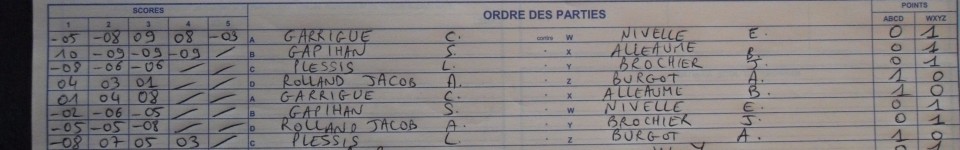 SCORES ORDRE DES PARTIES POINTS
1 2 3 4 5 ABCD WXYZ
-05 -08 09 08 -03 A GARRIGUE C. contre W NIVELLE E. 0 1
10 -09 -09 -09 / B GAPIHAN S. " X ALLEAUME B. 0 1
-08 -06 -06 / / C PLESSIS L. " Y BROCHIER J. 0 1
04 03 01 / / D ROLLAND JACOB A. " Z BURGOT A. 1 0
01 04 08 / / A GARRIGUE C. " X ALLEAUME B. 1 0
-02 -06 -05 / / B GAPIHAN S. " W NIVELLE E. 0 1
-05 -05 -08 / / D ROLLAND JACOB A. " Y BROCHIER J. 0 1
-08 07 05 03 / C PLESSIS L. " Z BURGOT A. 1 0